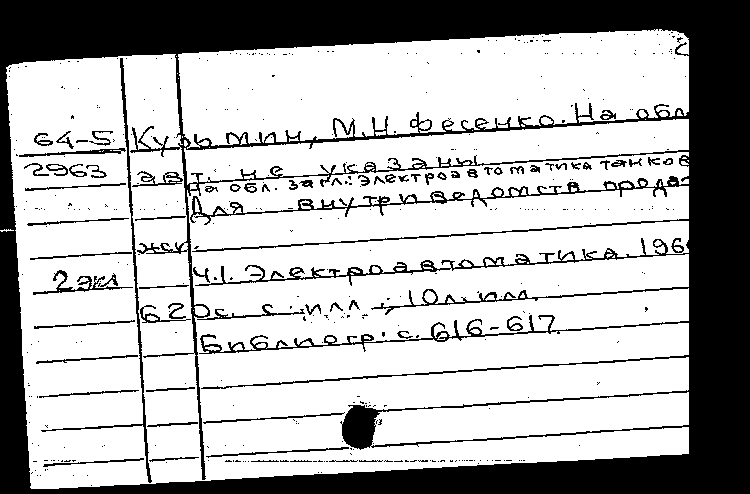 64-5 Кузьмин, М.Н. Фесенко. На обл
2963 авт. не указаны.
На обл. загл.: Электроавтоматика танков
Для внутриведомств прода
жи.
2 экз Ч.1. Электроавтоматика. 196
620с. с илл.; 10л. илл.
Библиогр: с. 616-617